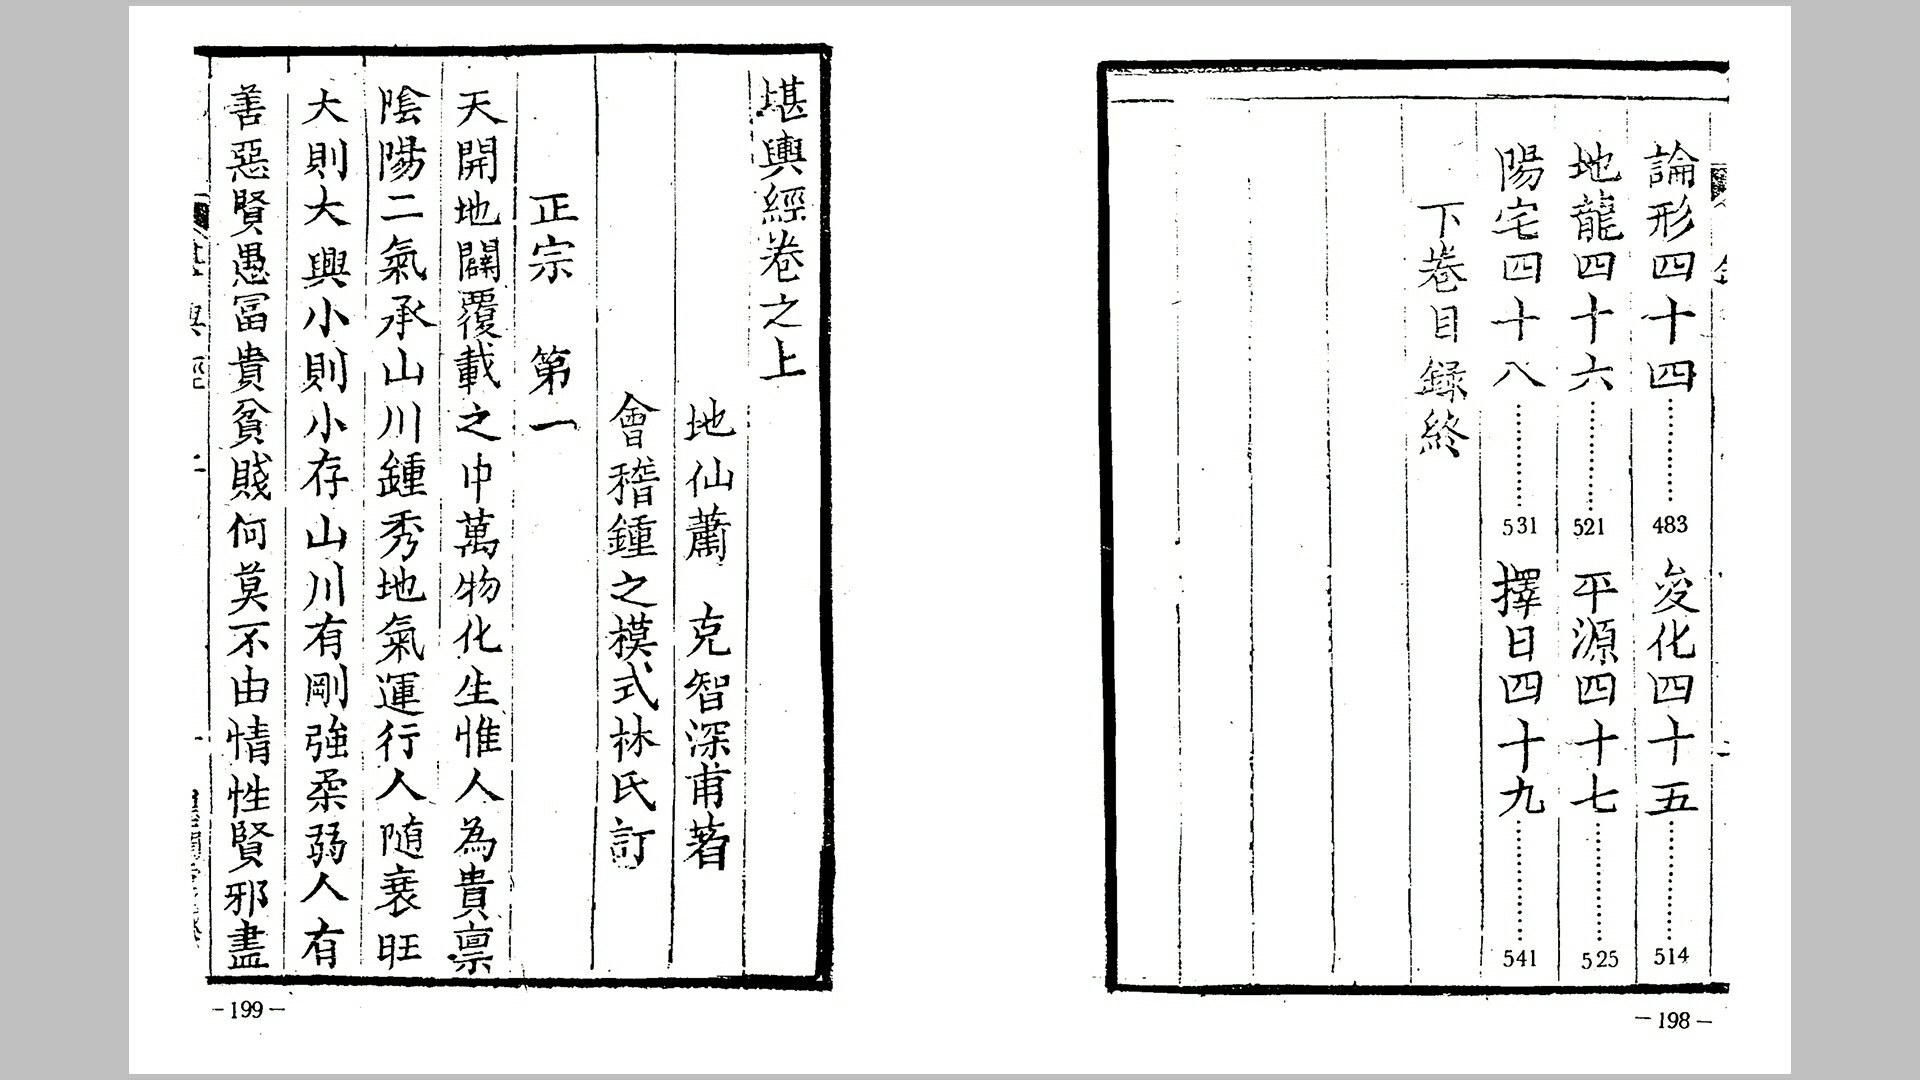 論形四十四…………483 変化四十五…………514
地龍四十六…………521 平源四十七…………525
陽宅四十八…………531 擇日四十九…………541
下卷目録終
－198－
堪輿經卷之上
地仙蕭 克智深甫著
會稽鍾之模式林氏訂
正宗 第一
天開地闢覆載之中萬物化生惟人為貴禀
陰陽二氣承山川鍾秀地氣運行人随衰旺
大則大興小則小存山川有剛強柔弱人有
善惡賢愚冨貴貧賤何莫不由情性賢邪盡
堪輿經
－199－